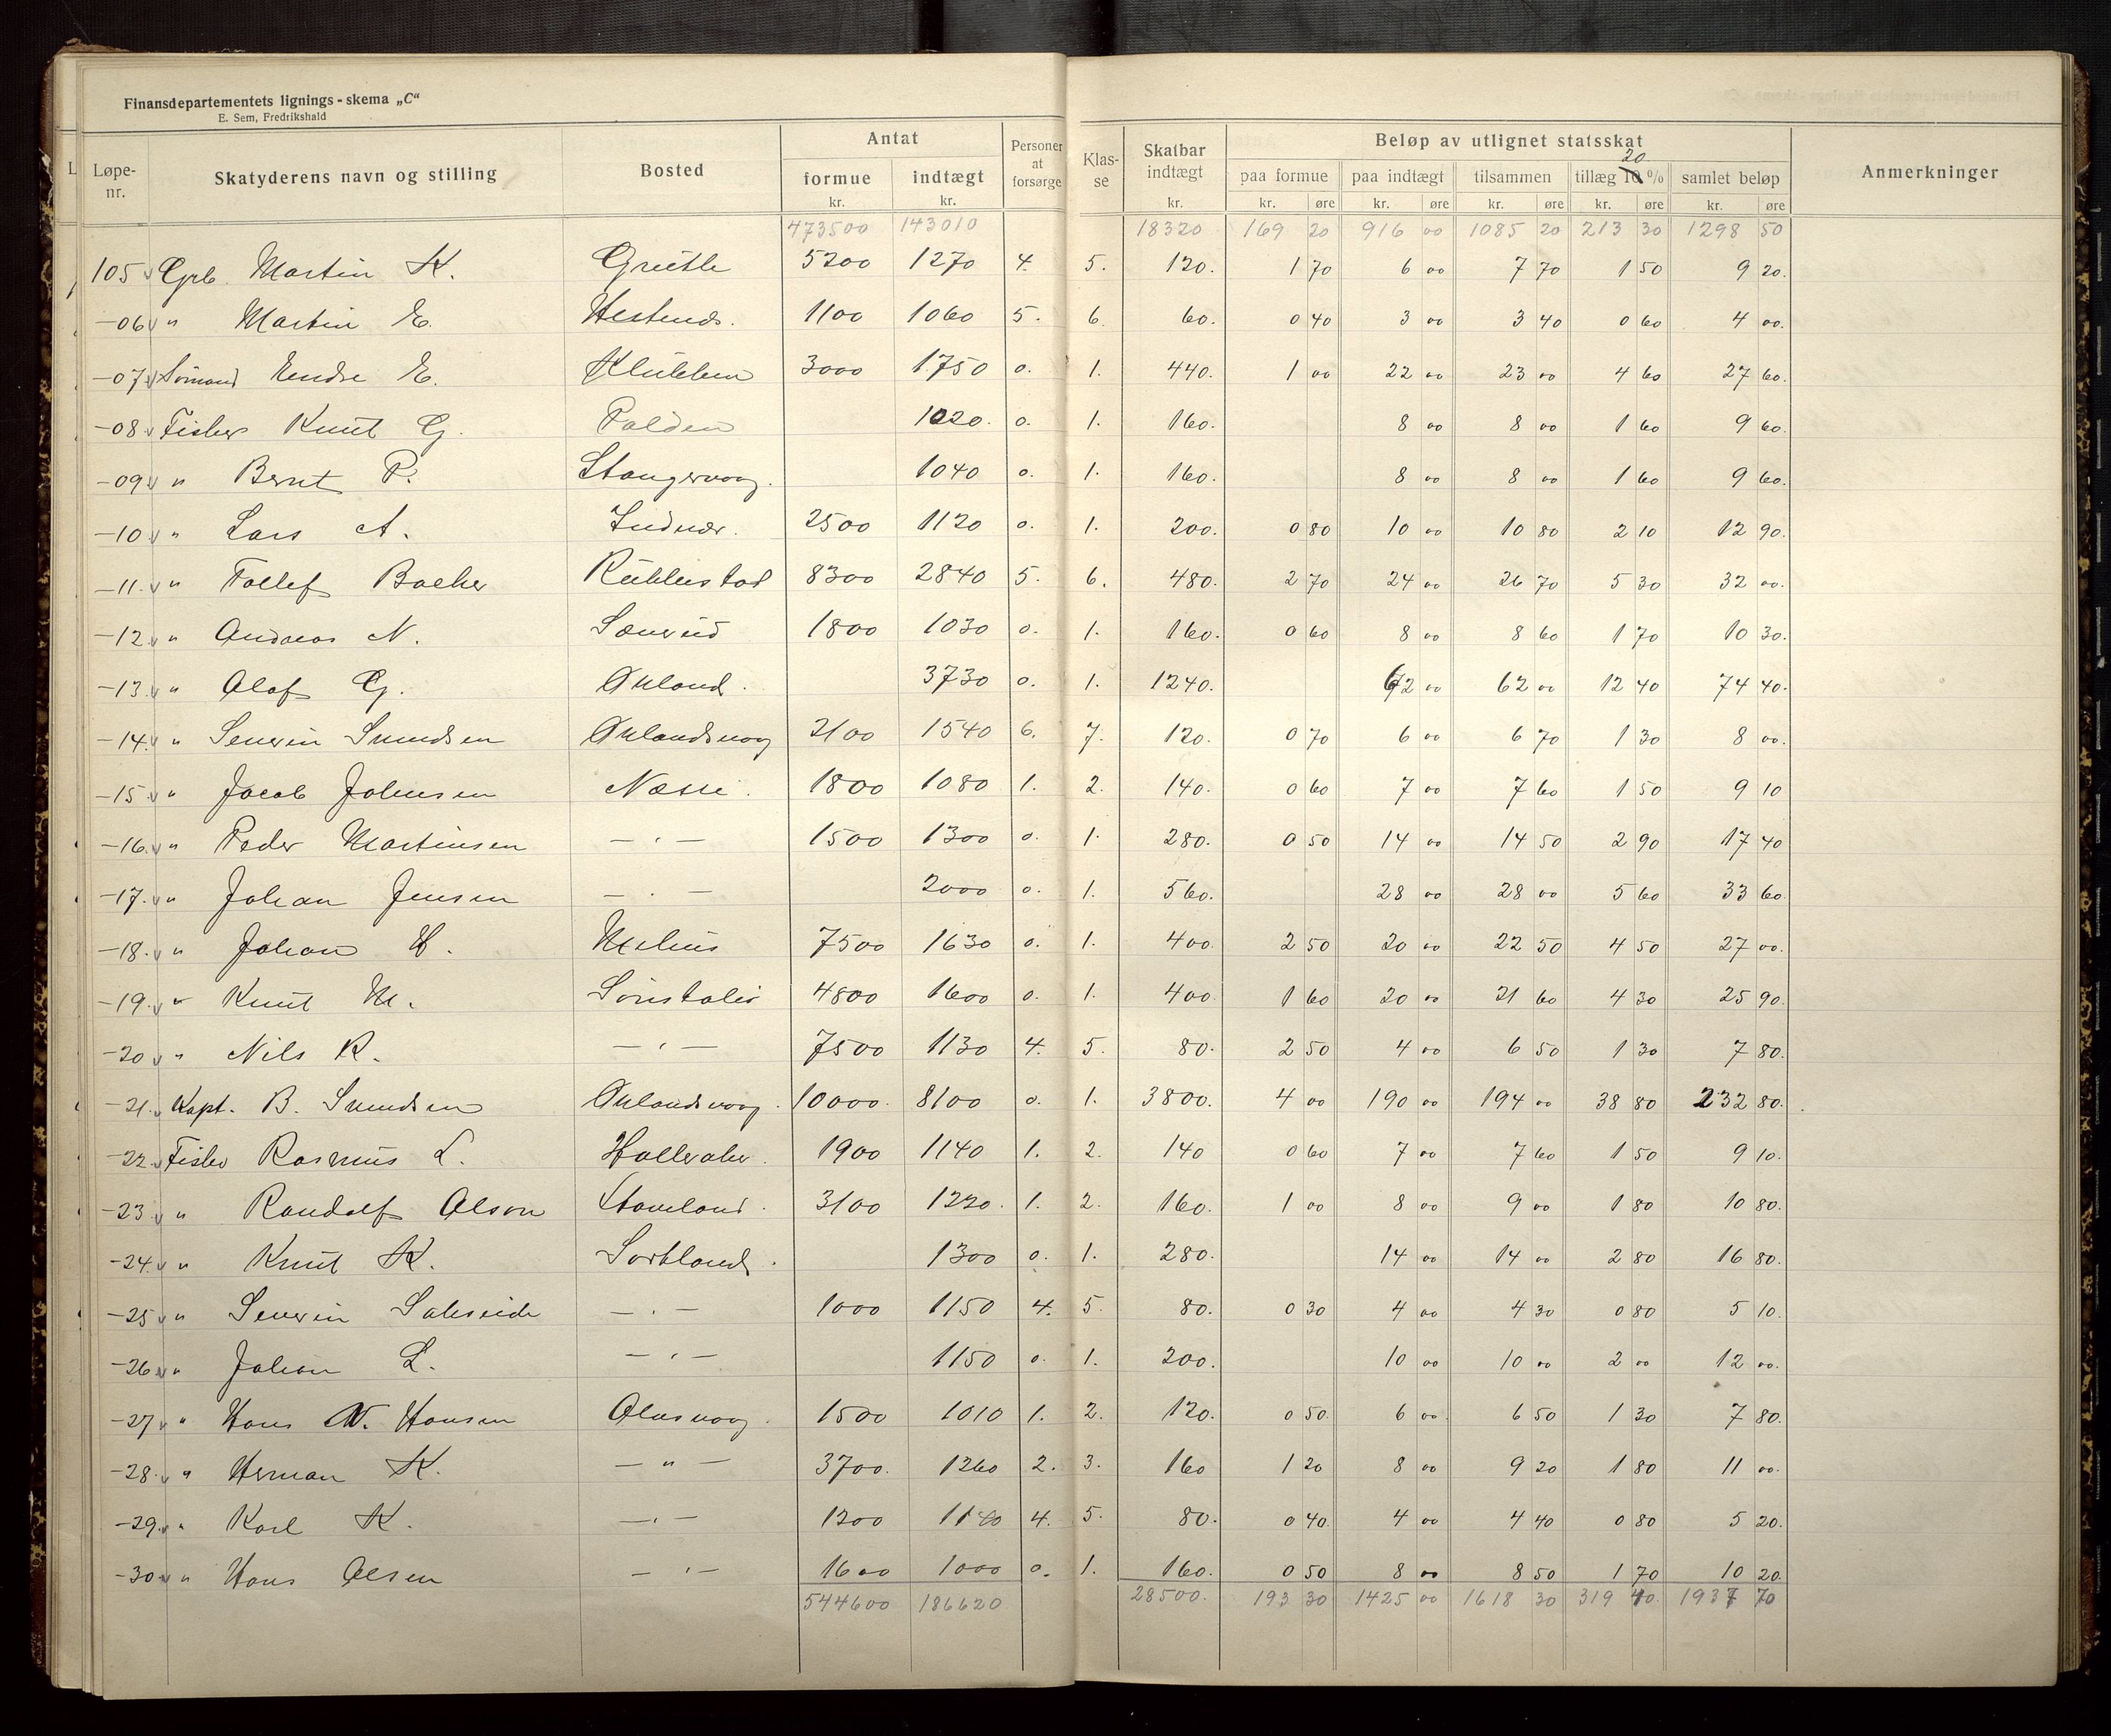 Finansdepartementets lignings-skema „C“
E. Sem, Fredrikshald
Løpe-nr. Skatyderens navn og stilling Bosted Antat formue kr. indtægt kr. Personer at forsørge Klas-se Skatbar indtægt kr. Beløp av utlignet statsskat paa formue kr. øre paa indtægt kr. øre tilsammen kr. øre tillæg 20 10 % kr. øre samlet beløp kr. øre Anmerkninger
473500 143010 18320 169 20 916 00 1085 20 213 30 1298 50
105 Grb. Martin K. Grutle 5200 1270 4. 5. 120. 1 70 6 00 7 70 1 50 9 20.
-06 " Martin E. Hestenæs. 1100 1060 5. 6. 60. 0 40 3 00 3 40 0 60 4 00.
-07 Sømand Endre E. Klubben 3000 1750 0. 1. 440. 1 00 22 00 23 00 4 60 27 60.
-08 Fisker Knut G. Folden 1020. 0. 1. 160. 8 00 8 00 1 60 9 60.
-09 " Bernt P. Stangervaag. 1040 0. 1. 160. 8 00 8 00 1 60 9 60.
-10 " Lars A. Indvær. 2500 1120 0. 1. 200. 0 80 10 00 10 80 2 10 12 90.
-11. " Tollef Bakke 8300 2840 5. 6. 480. 2 70 24 00 26 70 5 30 32 00.
-12 " Andreas N. 1800 1030 0. 1. 160. 0 60 8 00 8 60 1 70 10 30.
-13. " Olaf G. Økland. 3730 0. 1. 1240. 62 00 62 00 12 40 74 40.
-14. " Severin Svendsen Øklandsvaag 2100 1540 6. 7. 120. 0 70 6 00 6 70 1 30 8 00.
-15 " Jacob Johnsen Næsse. 1800 1080 1. 2. 140. 0 60 7 00 7 60 1 50 9 10
-16. " Peder Martinsen — " — 1500 1300 0. 1. 280. 0 50 14 00 14 50 2 90 17 40
-17. " Johan Jensen — " — 2000 0. 1. 560. 28 00 28 00 5 60 33 60.
-18. " Johan H. Melhus 7500 1630 0. 1. 400. 2 50 20 00 22 50 4 50 27 00.
-19. " Knut M. 4800 1600 0. 1. 400 1 60 20 00 21 60 4 30 25 90.
-20 " Nils R. — " — 7500 1130 4. 5. 80. 2 50 4 00 6 50 1 30 7 80.
-21. Kapt. B. Svendsen Øklandsvaag. 10000. 8100 0. 1. 3800. 4 00 190 00 194 00 38 80 232 80.
-22. Fisker Rasmus L. Halleraker. 1900 1140 1. 2. 140 0 60 7 00 7 60 1 50 9 10.
-23 " Randolf Olson Stavland. 3100 1220. 1. 2. 160. 1 00 8 00 9 00 1 80 10 80.
-24. " Knut K. Sortland. 1300 0. 1. 280. 14 00 14 00 2 80 16 80.
-25 " Severin Sakseide — " — 1000 1150 4. 5. 80. 0 30 4 00 4 30 0 80 5 10.
-26 " Johan L. — " — 1150 0. 1. 200. 10 00 10 00 2 00 12 00.
-27 " Hans N. Hansen Olasvaag. 1500 1010 1. 2. 120. 0 50. 6 00. 6 50 1 30 7 80.
-28. " Herman K. — " — 3700. 1260 2. 3. 160 1 20 8 00 9 20 1 80 11 00.
-29. " Karl K. — " — 1200 1140 4. 5. 80. 0 40. 4 00 4 40 0 80 5 20.
-30 " Hans Olsen — " — 1600 1000 0. 1. 160. 0 50 8 00 8 50 1 70 10 20.
544600 186620 28500. 193 30 1425 00 1618 30 319 40 1937 70